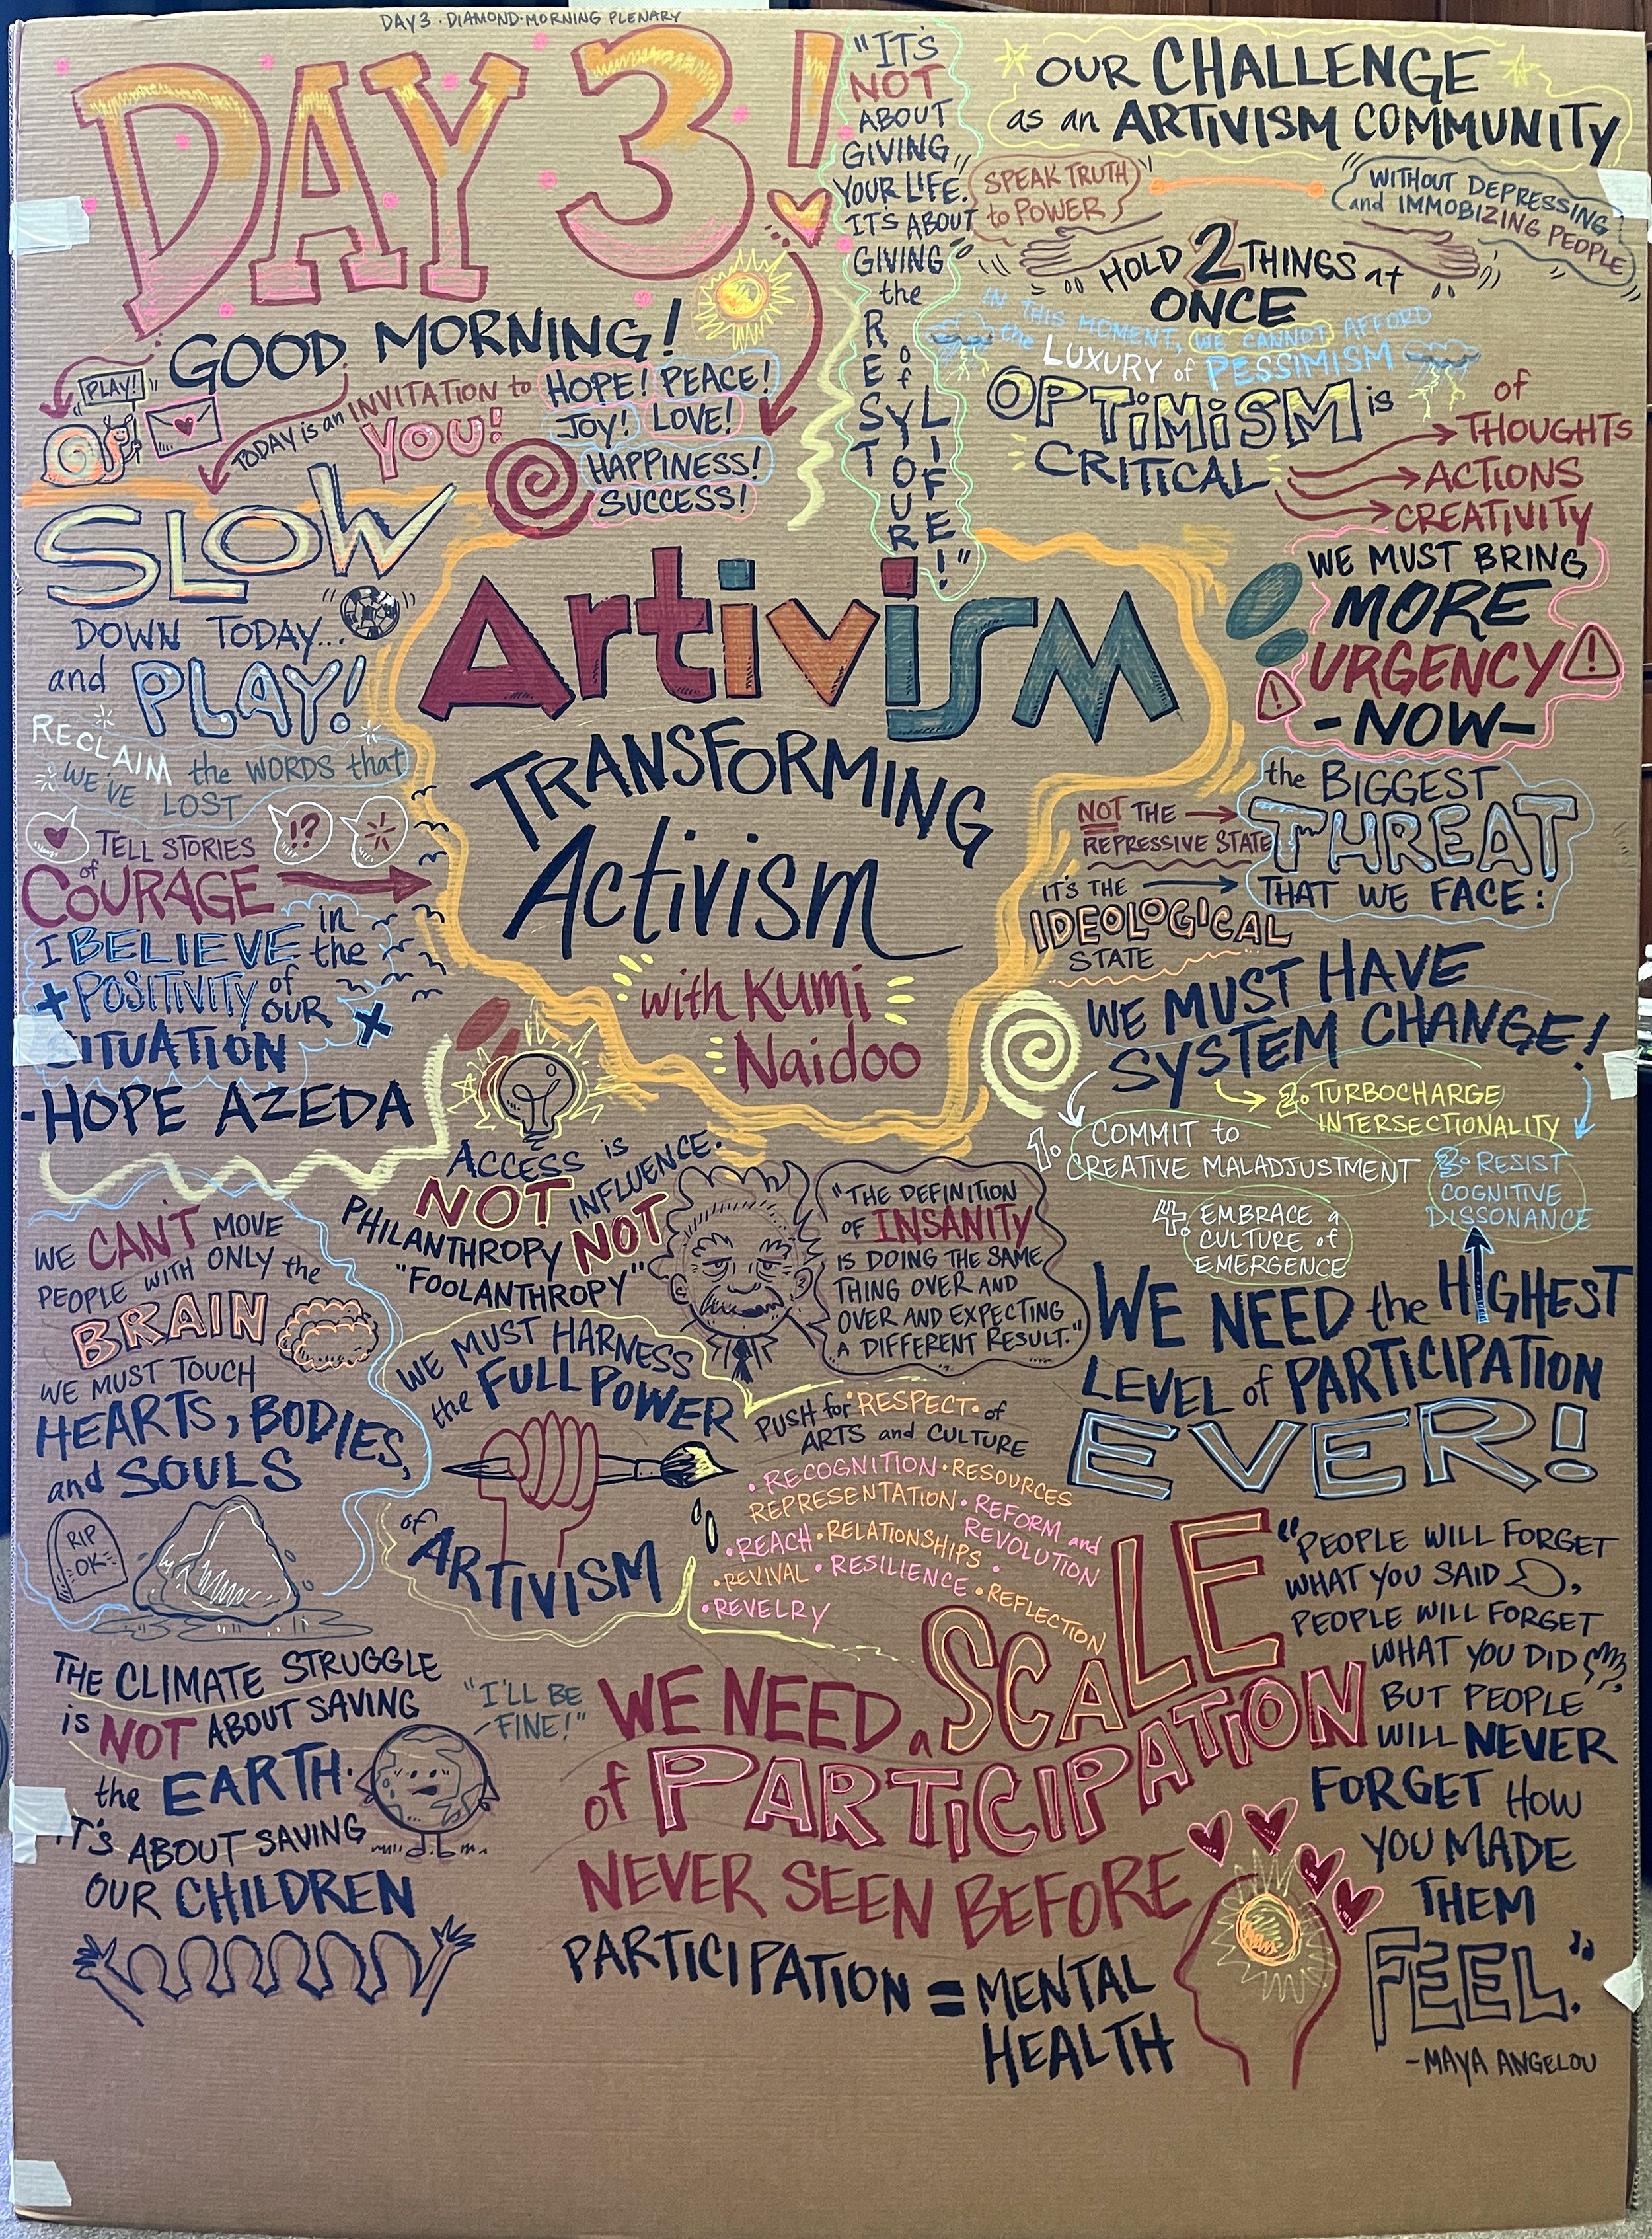 DAY 3 · DIAMOND · MORNING PLENARY
DAY 3!
GOOD MORNING!
PLAY!
TODAY is an INVITATION to
YOU!
HOPE! PEACE!
JOY! LOVE!
HAPPINESS!
SUCCESS!
SLOW
DOWN TODAY...
and PLAY!
RECLAIM the WORDS that
WE'VE LOST
!? *
TELL STORIES
of
COURAGE
I BELIEVE in the
+ POSITIVITY of
OUR +
SITUATION
-HOPE AZEDA
"IT'S
NOT
ABOUT
GIVING
YOUR LIFE.
IT'S ABOUT
GIVING
the
REST
of
YOUR
LIFE!"
OUR CHALLENGE
as an ARTIVISM COMMUNITY
SPEAK TRUTH
to POWER
WITHOUT DEPRESSING
and IMMOBIZING PEOPLE
HOLD 2 THINGS at
ONCE
IN THIS MOMENT, WE CANNOT AFFORD
the LUXURY of PESSIMISM
OPTIMISM is
CRITICAL
of
THOUGHTS
ACTIONS
CREATIVITY
WE MUST BRING
MORE
URGENCY
-NOW-
! !
Artivism
TRANSFORMING
Activism
with Kumi
Naidoo
the BIGGEST
THREAT
THAT WE FACE:
NOT THE
REPRESSIVE STATE
IT'S THE
IDEOLOGICAL
STATE
WE MUST HAVE
SYSTEM CHANGE!
1. COMMIT to
CREATIVE MALADJUSTMENT
2. TURBOCHARGE
INTERSECTIONALITY
3. RESIST
COGNITIVE
DISSONANCE
4. EMBRACE a
CULTURE of
EMERGENCE
WE NEED the HIGHEST
LEVEL of PARTICIPATION
EVER!
ACCESS is
NOT INFLUENCE.
PHILANTHROPY NOT
"FOOLANTHROPY"
"THE DEFINITION
OF INSANITY
IS DOING THE SAME
THING OVER AND
OVER AND EXPECTING
A DIFFERENT RESULT."
WE CAN'T MOVE
PEOPLE WITH ONLY the
BRAIN
WE MUST TOUCH
HEARTS, BODIES,
and SOULS
RIP
OK
WE MUST HARNESS
the FULL POWER
of
ARTIVISM
PUSH for RESPECT of
ARTS and CULTURE
• RECOGNITION • RESOURCES
REPRESENTATION • REFORM and
REVOLUTION
• REACH • RELATIONSHIPS •
• REVIVAL • RESILIENCE • REFLECTION
• REVELRY
THE CLIMATE STRUGGLE
is NOT ABOUT SAVING
the EARTH.
IT'S ABOUT SAVING
OUR CHILDREN
"I'LL BE
FINE!"
WE NEED a SCALE
of PARTICIPATION
NEVER SEEN BEFORE
PARTICIPATION = MENTAL
HEALTH
"PEOPLE WILL FORGET
WHAT YOU SAID,
PEOPLE WILL FORGET
WHAT YOU DID,
BUT PEOPLE
WILL NEVER
FORGET HOW
YOU MADE
THEM
FEEL."
-MAYA ANGELOU